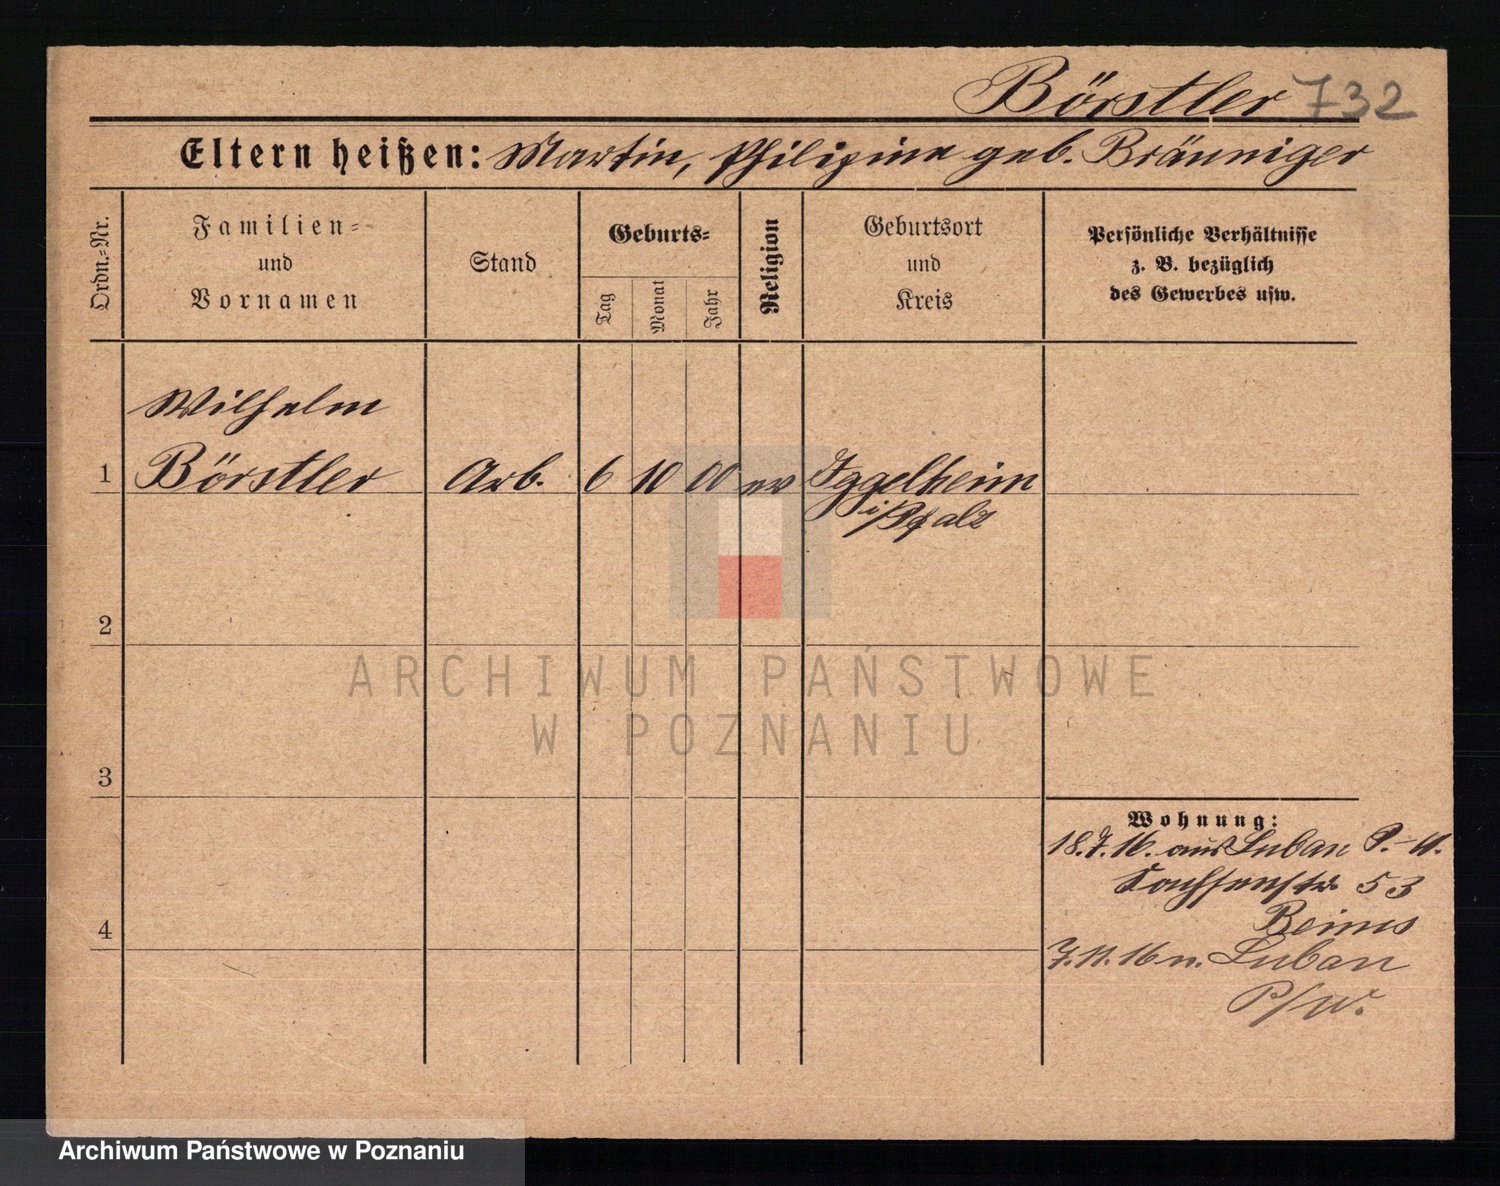 Börstler 732
Eltern heißen: Martin, Philipine geb. Bräuniger
Ordn.=Nr.
Familien=
und
Vornamen
Stand
Geburts=
Tag
Monat
Jahr
Religion
Geburtsort
und
Kreis
Persönliche Verhältnisse
z. B. bezüglich
des Gewerbes usw.
Wilhelm
1 Börstler Arb. 6 10 00 ev Iggelheim
i/Pfalz
2
3
4
Wohnung:
18.7.16. aus Luban P.-W.
Sachsenstr 53
7.11.16 n. Luban
P/W.
ARCHIWUM PAŃSTWOWE
W POZNANIU
Archiwum Państwowe w Poznaniu